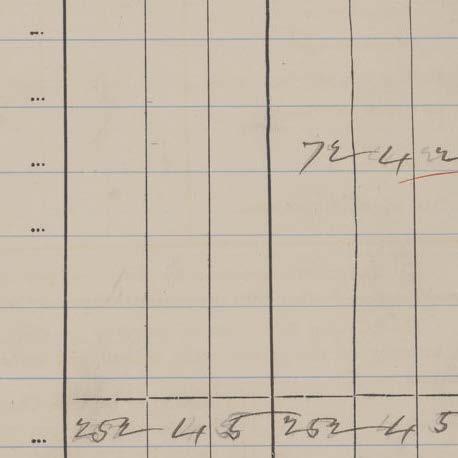 72 4
252 4 5 252 4 5